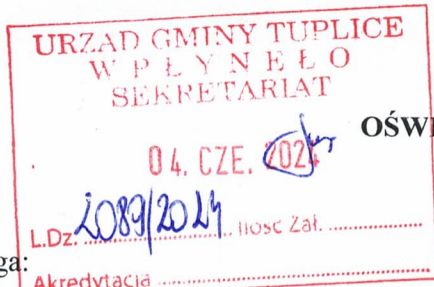 URZĄD GMINY TUPLICE
WPŁYNĘŁO
SEKRETARIAT
OŚWI
04. CZE. 2024
L.Dz. 2089/2024 Ilość Zał.
ga:
Akredytacja